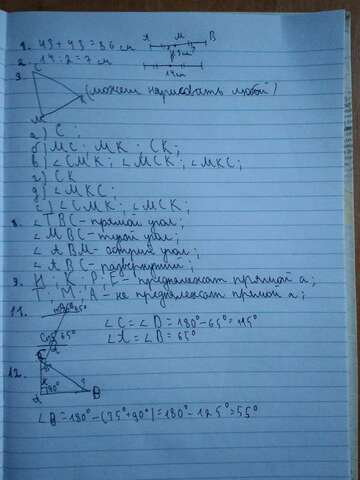 1. 43 + 43 = 86 см
A M B
43см
2. 14 : 2 = 7 см
14см
3.
C
(можеш нарисовать любой)
M
а) C ;
б) MC ; MK ; CK ;
в) ∠CMK ; ∠MCK ; ∠MKC ;
г) CK
д) ∠MKC ;
е) ∠CMK ; ∠MCK ;
8. ∠TBC - прямой угол ;
∠MBC - тупой угол ;
∠ABM - острый угол ;
∠ABC - развернутый ;
9. H ; K ; P ; E - предналежат прямой a ;
T ; M ; A - не предналежат прямой a ;
11.
65°
∠C = ∠D = 180° - 65° = 115°
∠A = ∠B = 65°
12.
90°
B
∠B = 180° - (35° + 90°) = 180° - 125° = 55°